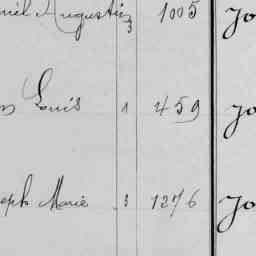 Augustin 3 1005 Jo
Louis 1 459 Jo
eph Marie 3 1276 Jo